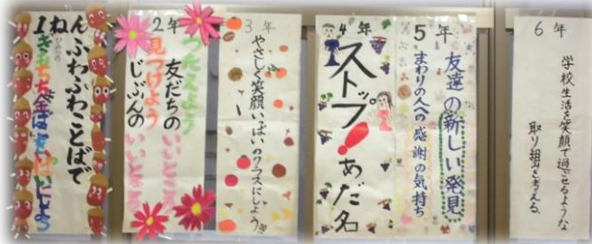 1ねん
ふわふわことばで
2年
つたえよう
友だちのいいところ
見つけよう
じぶんのいいところ
3年
やさしく笑顔いっぱいのクラスにしよう
4年
ストップ!あだ名
5年
友達の新しい発見
まわりの人への感謝の気持ち
6年
学校生活を笑顔で過ごせるような
取り組みを考える。